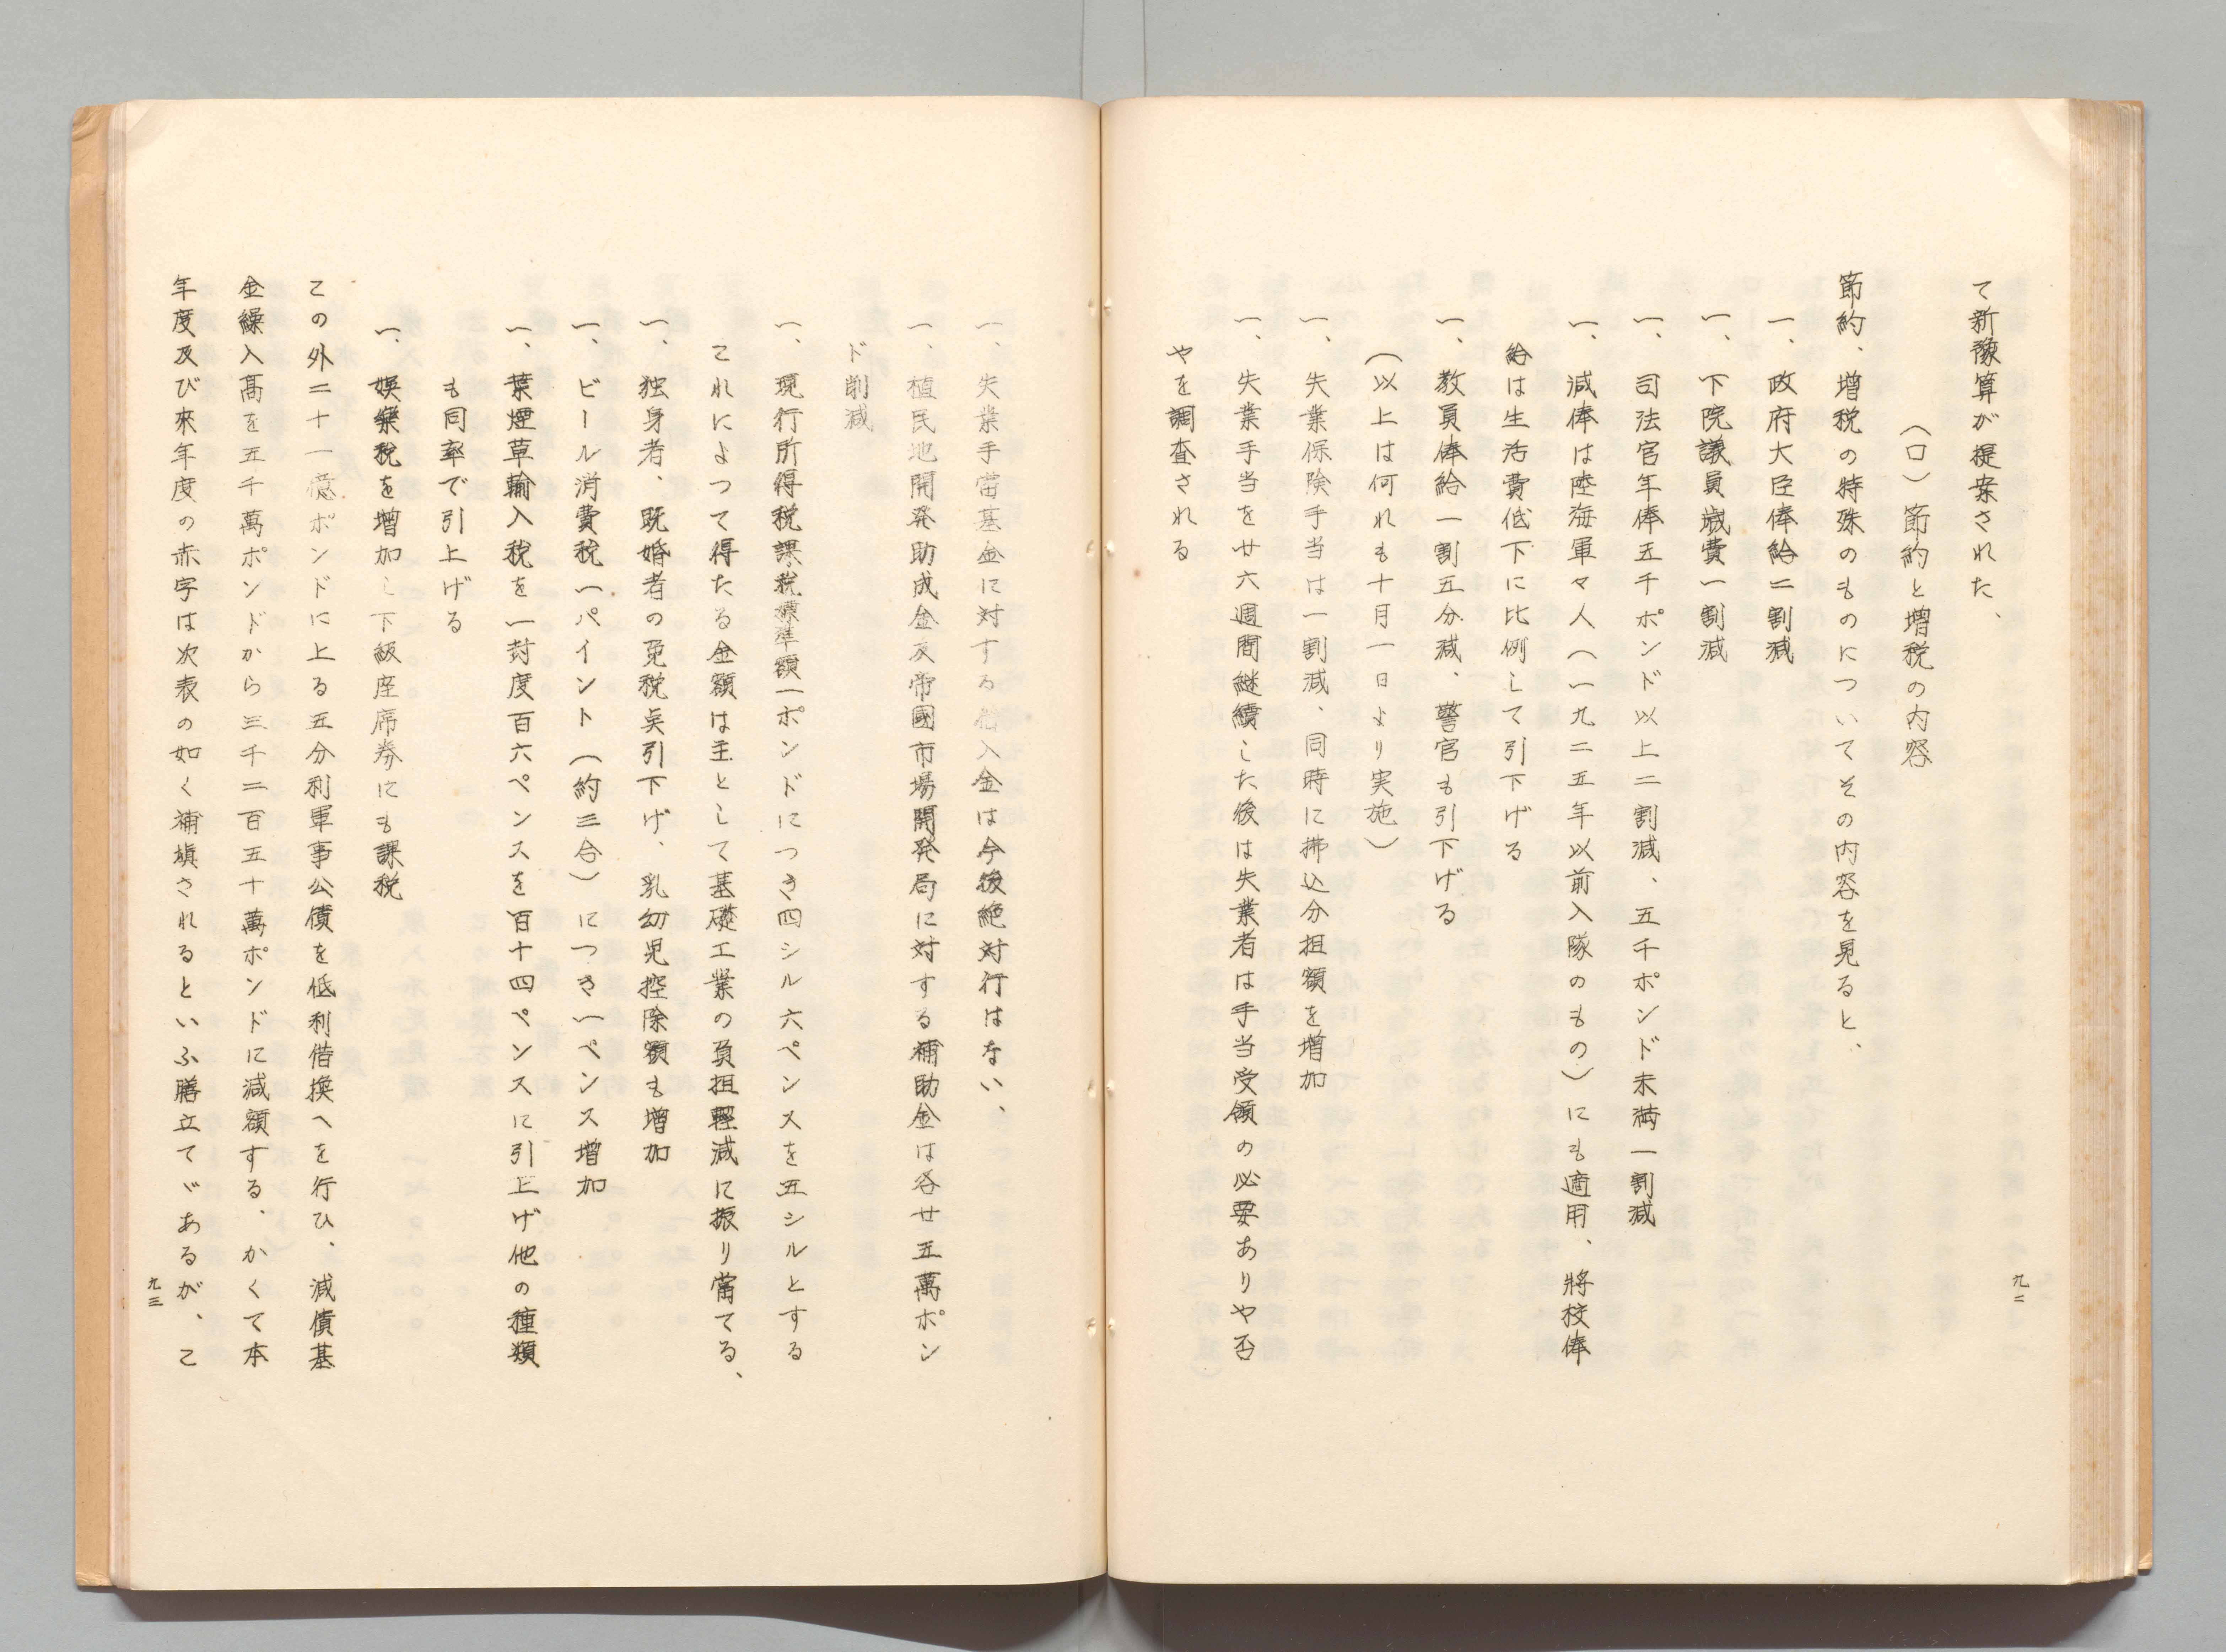 て新豫算が提案された、
（ロ）節約と増税の内容
節約、増税の特殊のものについてその内容を見ると、
一、政府大臣俸給二割減
一、下院議員歳費一割減
一、司法官年俸五千ポンド以上二割減、五千ポンド未満一割減
一、減俸は陸海軍々人（一九二五年以前入隊のもの）にも適用、將校俸
給は生活費低下に比例して引下げる
一、教員俸給一割五分減、警官も引下げる
（以上は何れも十月一日より実施）
一、失業保険手当は一割減、同時に拂込分担額を増加
一、失業手当を廿六週間継續した後は失業者は手当受領の必要ありや否
やを調査される
九二
一、失業手當基金に対する借入金は今後絶対行はない、
一、植民地開発助成金及帝國市場開発局に対する補助金は各廿五萬ポン
ド削減
一、現行所得税課税標準額一ポンドにつき四シル六ペンスを五シルとする
これによつて得たる金額は主として基礎工業の負担軽減に振り當てる、
一、独身者、既婚者の免税点引下げ、乳幼児控除額も増加
一、ビール消費税一パイント（約三合）につき一ペンス増加
一、葉煙草輸入税を一封度百六ペンスを百十四ペンスに引上げ他の種類
も同率で引上げる
一、娯樂税を増加し下級座席券にも課税
この外二十一億ポンドに上る五分利軍事公債を低利借換へを行ひ、減債基
金繰入髙を五千萬ポンドから三千二百五十萬ポンドに減額する、かくて本
年度及び來年度の赤字は次表の如く補塡されるといふ膳立てゞあるが、こ
九三